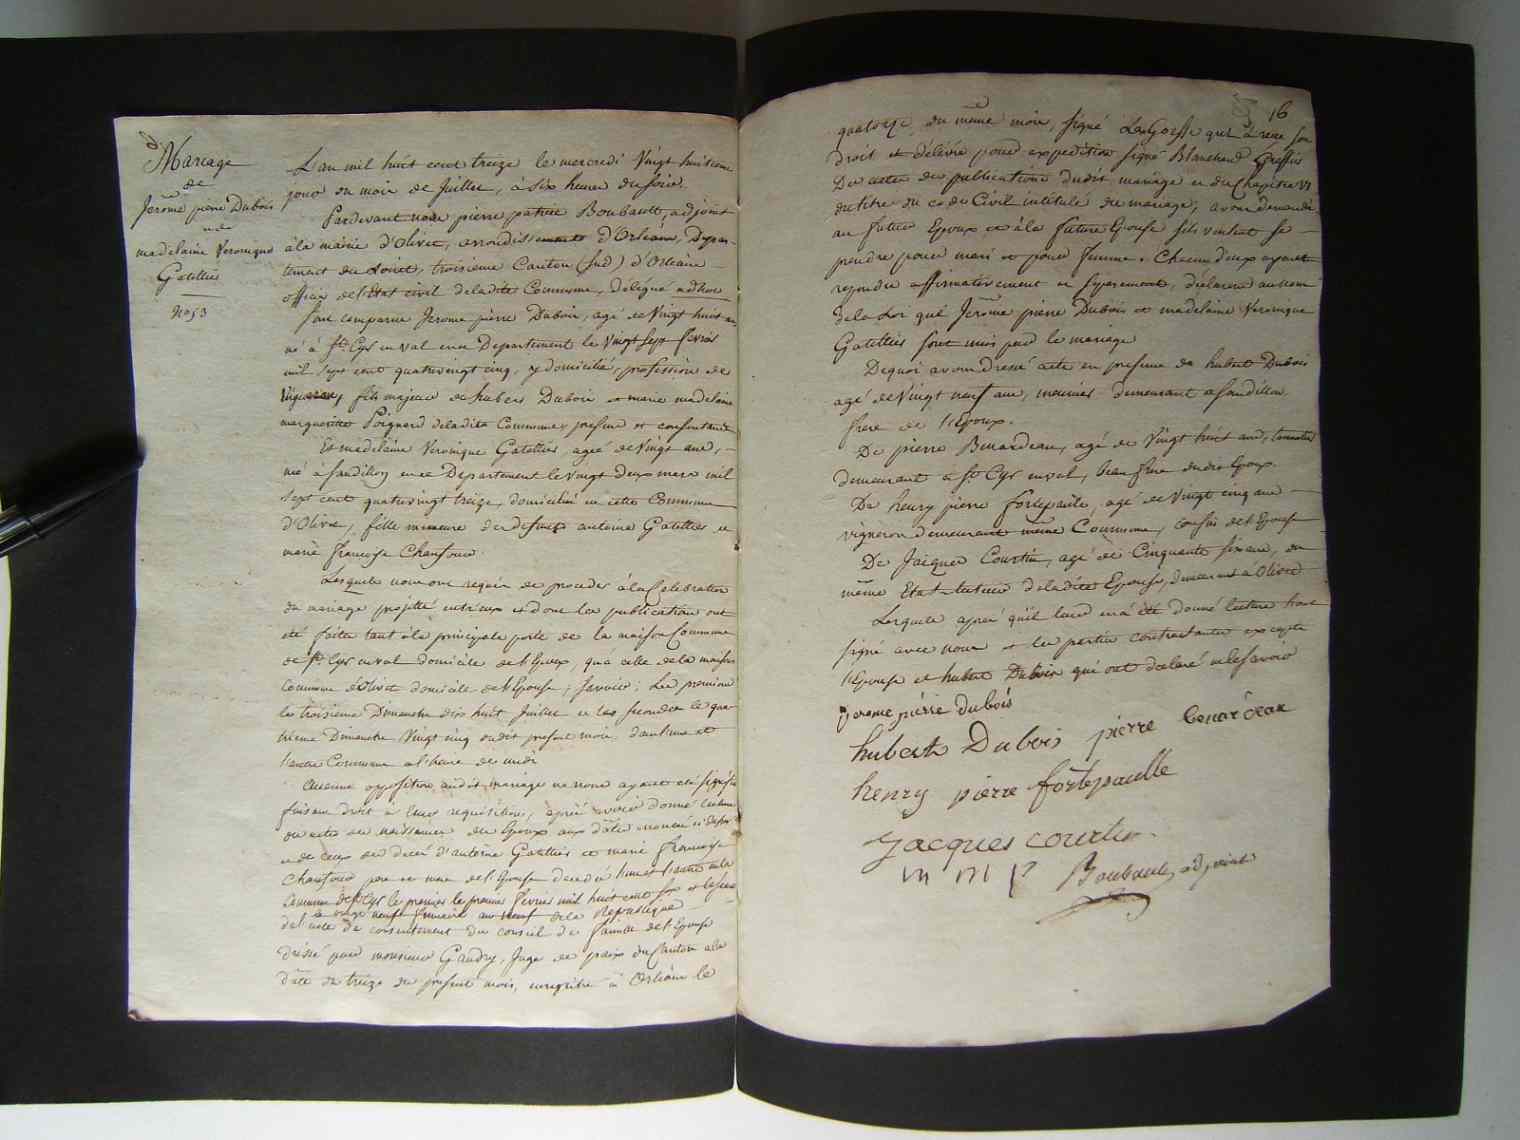 Mariage
de
Jerôme pierre Dubois
madelaine Veronique
Gatellier
No 53
L'an mil huit cent treize le mercredi Vingt huitieme
jour du mois de Juillet, à six heures du soir.
Pardevant nous pierre patrice Boubault, adjoint
à la mairie d'olivet, arrondissement d'Orléans, Depar-
tement du Loiret, troisieme Canton (sud) d'Orléans
officier de l'Etat civil deladite Commune, délégué adhoc
sont comparus Jerome pierre Dubois, agé de Vingt huit ans
né à St Cyr en val en ce Departement le Vingt sept fevrier
mil sept cent quatrevingt cinq, y domicilié, profession de
Vigneron, fils majeur de hubert Dubois et marie madelaine
margueritte Poignard deladite Commune, present et consentant
Et madelaine Veronique Gatellier, agée de Vingt ans,
née à sandillon en ce Departement le Vingt deux mars mil
sept cent quatrevingt treize, domiciliée en cette Commune
d'Olivet, fille mineure des defunts antoine Gatellier et
marie françoise Chaufour
Lesquels nous ont requis de proceder à la Celebration
du mariage projetté entr'eux et dont les publications ont
été faites tant à la principale porte de la maison Commune
de St Cyr en val domicile de l'Epoux, qu'à celle de la maison
Commune d'olivet domicile de l'Epouse; savoir: Les premieres
les troisieme Dimanche dix huit Juillet et les secondes le qua-
trieme Dimanche Vingt cinq dudit present mois, dans l'une et
l'autre Commune a l'heure de midi
Aucune opposition audit mariage ne nous ayant été signifié
faisant droit à leur requisition, après avoir donné lecture
des actes de naissances des Epoux aux dâtes enoncées
et de ceux de décès d'antoine Gatellier et marie françoise
Chaufour pere et mere de l'Epouse decedés l'un et l'autre en la
Commune de St Cyr le premier le premier fevrier mil huit cent six et la seconde
le onze neuf frimaire an neuf de la Republique
de l'acte de consentement du conseil de famille de l'Epouse
dressé par monsieur Gaudry, Juge de paix du Canton a la
dâte du treize du present mois, enregistré à Orléans le
16
quatorze du même mois, signé qui à reçu son
droit et délivré pour expedition signé Blanchard Greffier
Des actes de publications dudit mariage et du Chapitre VI
du titre du code Civil intitulé du mariage, avons demandé
au futur Epoux et à la future Epouse s'ils veulent se
prendre pour mari et pour femme. Chacun d'eux ayant
repondu affirmativement et separement, déclarons au nom
de la Loi que Jerôme pierre Dubois et madelaine Veronique
Gatellier sont unis par le mariage
Dequoi avons dressé acte en presence de hubert Dubois
agé de Vingt neuf ans, meunier demeurant a sandillon
frere de l'Epoux.
De pierre Benardeau, agé de Vingt huit ans, tonnelier
demeurant à St Cyr en val, beau frere dudit Epoux.
De henry pierre fortepaulle, agé de Vingt cinq ans
vigneron demeurant même Commune, cousin de l'Epouse
De Jacques Courtin, agé de Cinquante six ans, du
même Etat tuteur deladite Epouse, demeurant à Olivet
Lesquels après qu'il leur en a été donné lecture ont
signé avec nous et les parties contractantes excepté
l'Epouse et hubert Dubois qui ont déclaré ne le savoir
jerome pierre dubois
hubert Dubois pierre benardeau
henry pierre fortepaulle
jacques courtin
Boubault adjoint